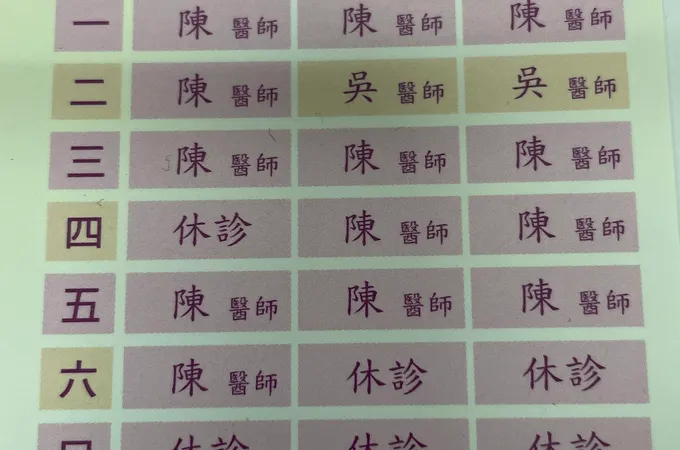 一 陳 醫師 陳 醫師 陳 醫師
二 陳 醫師 吳 醫師 吳 醫師
三 陳 醫師 陳 醫師 陳 醫師
四 休診 陳 醫師 陳 醫師
五 陳 醫師 陳 醫師 陳 醫師
六 陳 醫師 休診 休診
日 休診 休診 休診